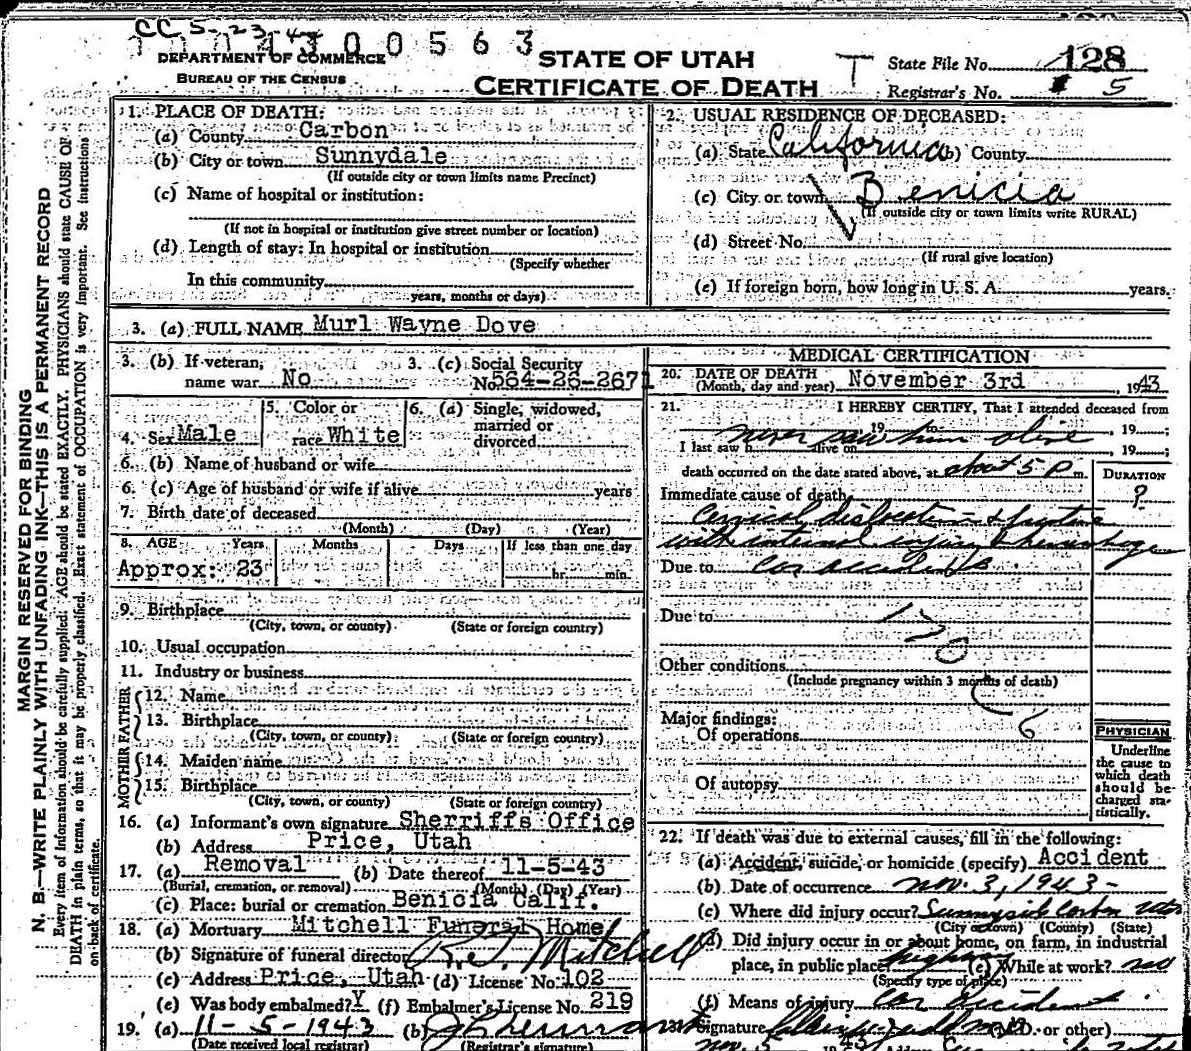 CC 5-23-44
4300563
DEPARTMENT OF COMMERCE
BUREAU OF THE CENSUS
STATE OF UTAH
CERTIFICATE OF DEATH
T
State File No. 128
Registrar's No. 5
MARGIN RESERVED FOR BINDING
N. B.—WRITE PLAINLY WITH UNFADING INK—THIS IS A PERMANENT RECORD
Every item of information should be carefully supplied. AGE should be stated EXACTLY. PHYSICIANS should state CAUSE OF
DEATH in plain terms, so that it may be properly classified. Exact statement of OCCUPATION is very important. See instructions
on back of certificate.
1. PLACE OF DEATH:
(a) County Carbon
(b) City or town Sunnydale
(If outside city or town limits name Precinct)
(c) Name of hospital or institution:
(If not in hospital or institution give street number or location)
(d) Length of stay: In hospital or institution
(Specify whether
In this community
years, months or days)
2. USUAL RESIDENCE OF DECEASED:
(a) State California (b) County
(c) City or town Benicia
(If outside city or town limits write RURAL)
(d) Street No.
(If rural give location)
(e) If foreign born, how long in U. S. A. years.
3. (a) FULL NAME Murl Wayne Dove
3. (b) If veteran, name war No
3. (c) Social Security No. 564-26-2671
4. Sex Male
5. Color or race White
6. (a) Single, widowed, married or divorced
6. (b) Name of husband or wife
6. (c) Age of husband or wife if alive years
7. Birth date of deceased
(Month) (Day) (Year)
8. AGE Years Months Days If less than one day
Approx: 23 hr. min.
9. Birthplace
(City, town, or county) (State or foreign country)
10. Usual occupation
11. Industry or business
FATHER
12. Name
13. Birthplace
(City, town, or county) (State or foreign country)
MOTHER
14. Maiden name
15. Birthplace
(City, town, or county) (State or foreign country)
16. (a) Informant's own signature Sherriffs Office
(b) Address Price, Utah
17. (a) Removal (b) Date thereof 11-5-43
(Burial, cremation, or removal) (Month) (Day) (Year)
(c) Place: burial or cremation Benicia Calif.
18. (a) Mortuary Mitchell Funeral Home
(b) Signature of funeral director R. J. Mitchell
(c) Address Price, Utah (d) License No. 102
(e) Was body embalmed? Y (f) Embalmer's License No. 219
19. (a) 11-5-1943 (b)
(Date received local registrar) (Registrar's signature)
MEDICAL CERTIFICATION
20. DATE OF DEATH
(Month, day and year) November 3rd, 1943
21. I HEREBY CERTIFY, That I attended deceased from
, 19 to , 19 ;
never saw him alive
I last saw h alive on , 19 ;
death occurred on the date stated above, at about 5 P m.
DURATION
?
Immediate cause of death
Cervical dislocation & fracture
with internal injury & hemorrhage
Due to Car accident
Due to
170
Other conditions
(Include pregnancy within 3 months of death)
C
6
Major findings:
Of operations
Of autopsy
PHYSICIAN
Underline
the cause to
which death
should be
charged sta-
tistically.
22. If death was due to external causes, fill in the following:
(a) Accident, suicide, or homicide (specify) Accident
(b) Date of occurrence Nov. 3, 1943-
(c) Where did injury occur? Sunnyside Carbon Utah
(City or town) (County) (State)
(d) Did injury occur in or about home, on farm, in industrial
place, in public place? highway (e) While at work? no
(Specify type of place)
(f) Means of injury Car accident
23. Signature (M.D. or other)
Nov. 5 1943 Address